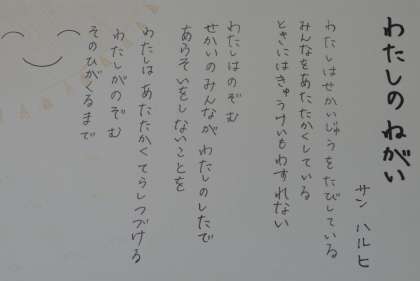 わたしのねがい
サン ハルヒ
わたしはせかいじゅうをたびしている
みんなをあたたかくしている
ときにはきゅうけいもわすれない
わたしはのぞむ
せかいのみんなが わたしのしたで
あらそいをしないことを
わたしは あたたかくてらしつづける
わたしがのぞむ
そのひがくるまで